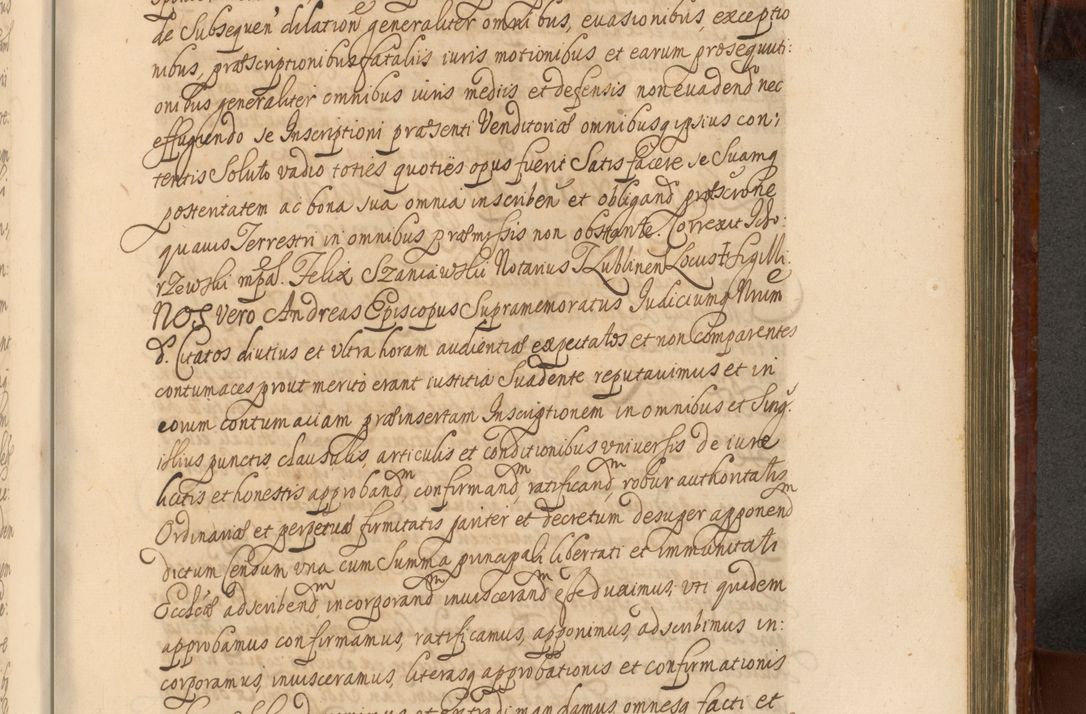 de Subsequen̄ dilation̄ generaliter omni bus, evasionibus, exceptio
nibus, præscriptionibus fatalis iuris motionibus et earum prosequuti:
onibus generaliter omnibus iuris mediis et defensis non evadend nec
effugiendo se Inscriptioni præsenti Venditoriæ omnibusq ipsius con:
tentis Soluto vadio toties quoties opus fuerit Satis facere se Suamq
posteritatem ac bona sua omnia inscriben̄ et obligand præscrione
quavis Terrestri in omnibus præmissis non obstante. Correxit Ido:
rzewski mpa. Felix Szaniawski Notarius T Lublinen Locus Sigilli.
NOS vero Andreas Episcopus Supramemoratus Judiciumq Nrum
d. Citatos diutius et vltra horam audientiæ expectatos et non Comparentes
contumaces prout merito erant iustitia Suadente reputavimus et in
eorum contumaciam præinsertam Inscriptionem in omnibus et Sing:
illius punctis clausulis, articulis et conditionibus vniversis de iure
licitis et honestis approband, confirmand ratificand, robur authoritatis
Ordinariæ et perpetuæ firmitatis pariter et decretum desuper apponend
dictum Censum vna cum Summa principali libertati et immunitati
Ecclicæ adscribend incorporand inviscerand esse duximus, vti quidem
approbamus confirmamus, ratificamus, apponimus, adscribimus in:
corporamus, invisceramus, literasq approbationis et confirmationis
mandamus omnesq facti et